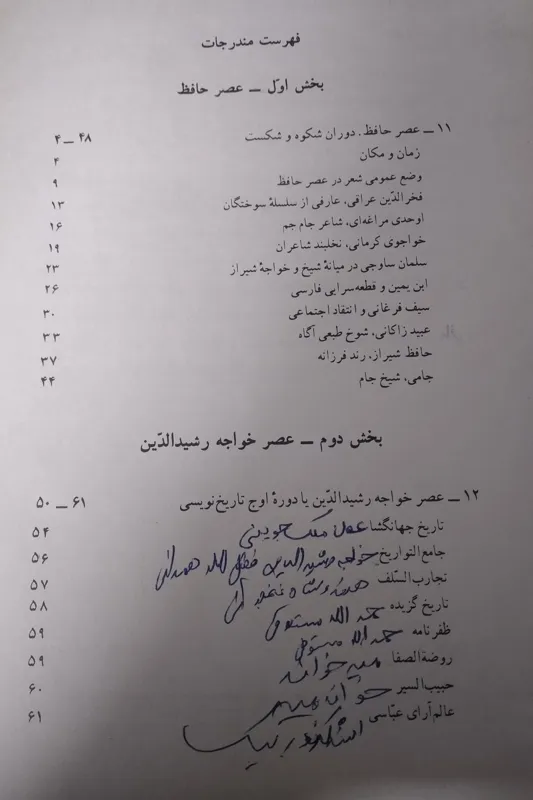 فهرست مندرجات
بخش اوّل ــ عصر حافظ
۱۱ ــ عصر حافظ. دوران شکوه و شکست ۴ ــ ۴۸
زمان و مکان ۴
وضع عمومی شعر در عصر حافظ ۹
فخرالدّین عراقی، عارفی از سلسلۀ سوختگان ۱۳
اوحدی مراغه‌ای، شاعر جام جم ۱۶
خواجوی کرمانی، نخلبند شاعران ۱۹
سلمان ساوجی در میانۀ شیخ و خواجۀ شیراز ۲۳
ابن یمین و قطعه‌سرایی فارسی ۲۶
سیف فرغانی و انتقاد اجتماعی ۳۰
عبید زاکانی، شوخ طبعی آگاه ۳۳
حافظ شیراز، رند فرزانه ۳۷
جامی، شیخ جام ۴۴
بخش دوم ــ عصر خواجه رشیدالدّین
۱۲ ــ عصر خواجه رشیدالدّین یا دورۀ اوج تاریخ‌نویسی ۵۰ ــ ۶۱
تاریخ جهانگشا عطا ملک جوینی ۵۴
جامع‌التواریخ خواجه رشیدالدین فضل الله همدانی ۵۶
تجارب‌السّلف هندوشاه نخجوانی ۵۷
تاریخ گزیده حمد الله مستوفی ۵۸
ظفرنامه حمد الله مستوفی ۵۹
روضةالصفا میر خواند ۵۹
حبیب‌السیر خواند میر ۶۰
عالم‌آرای عبّاسی اسکندر بیک ۶۱